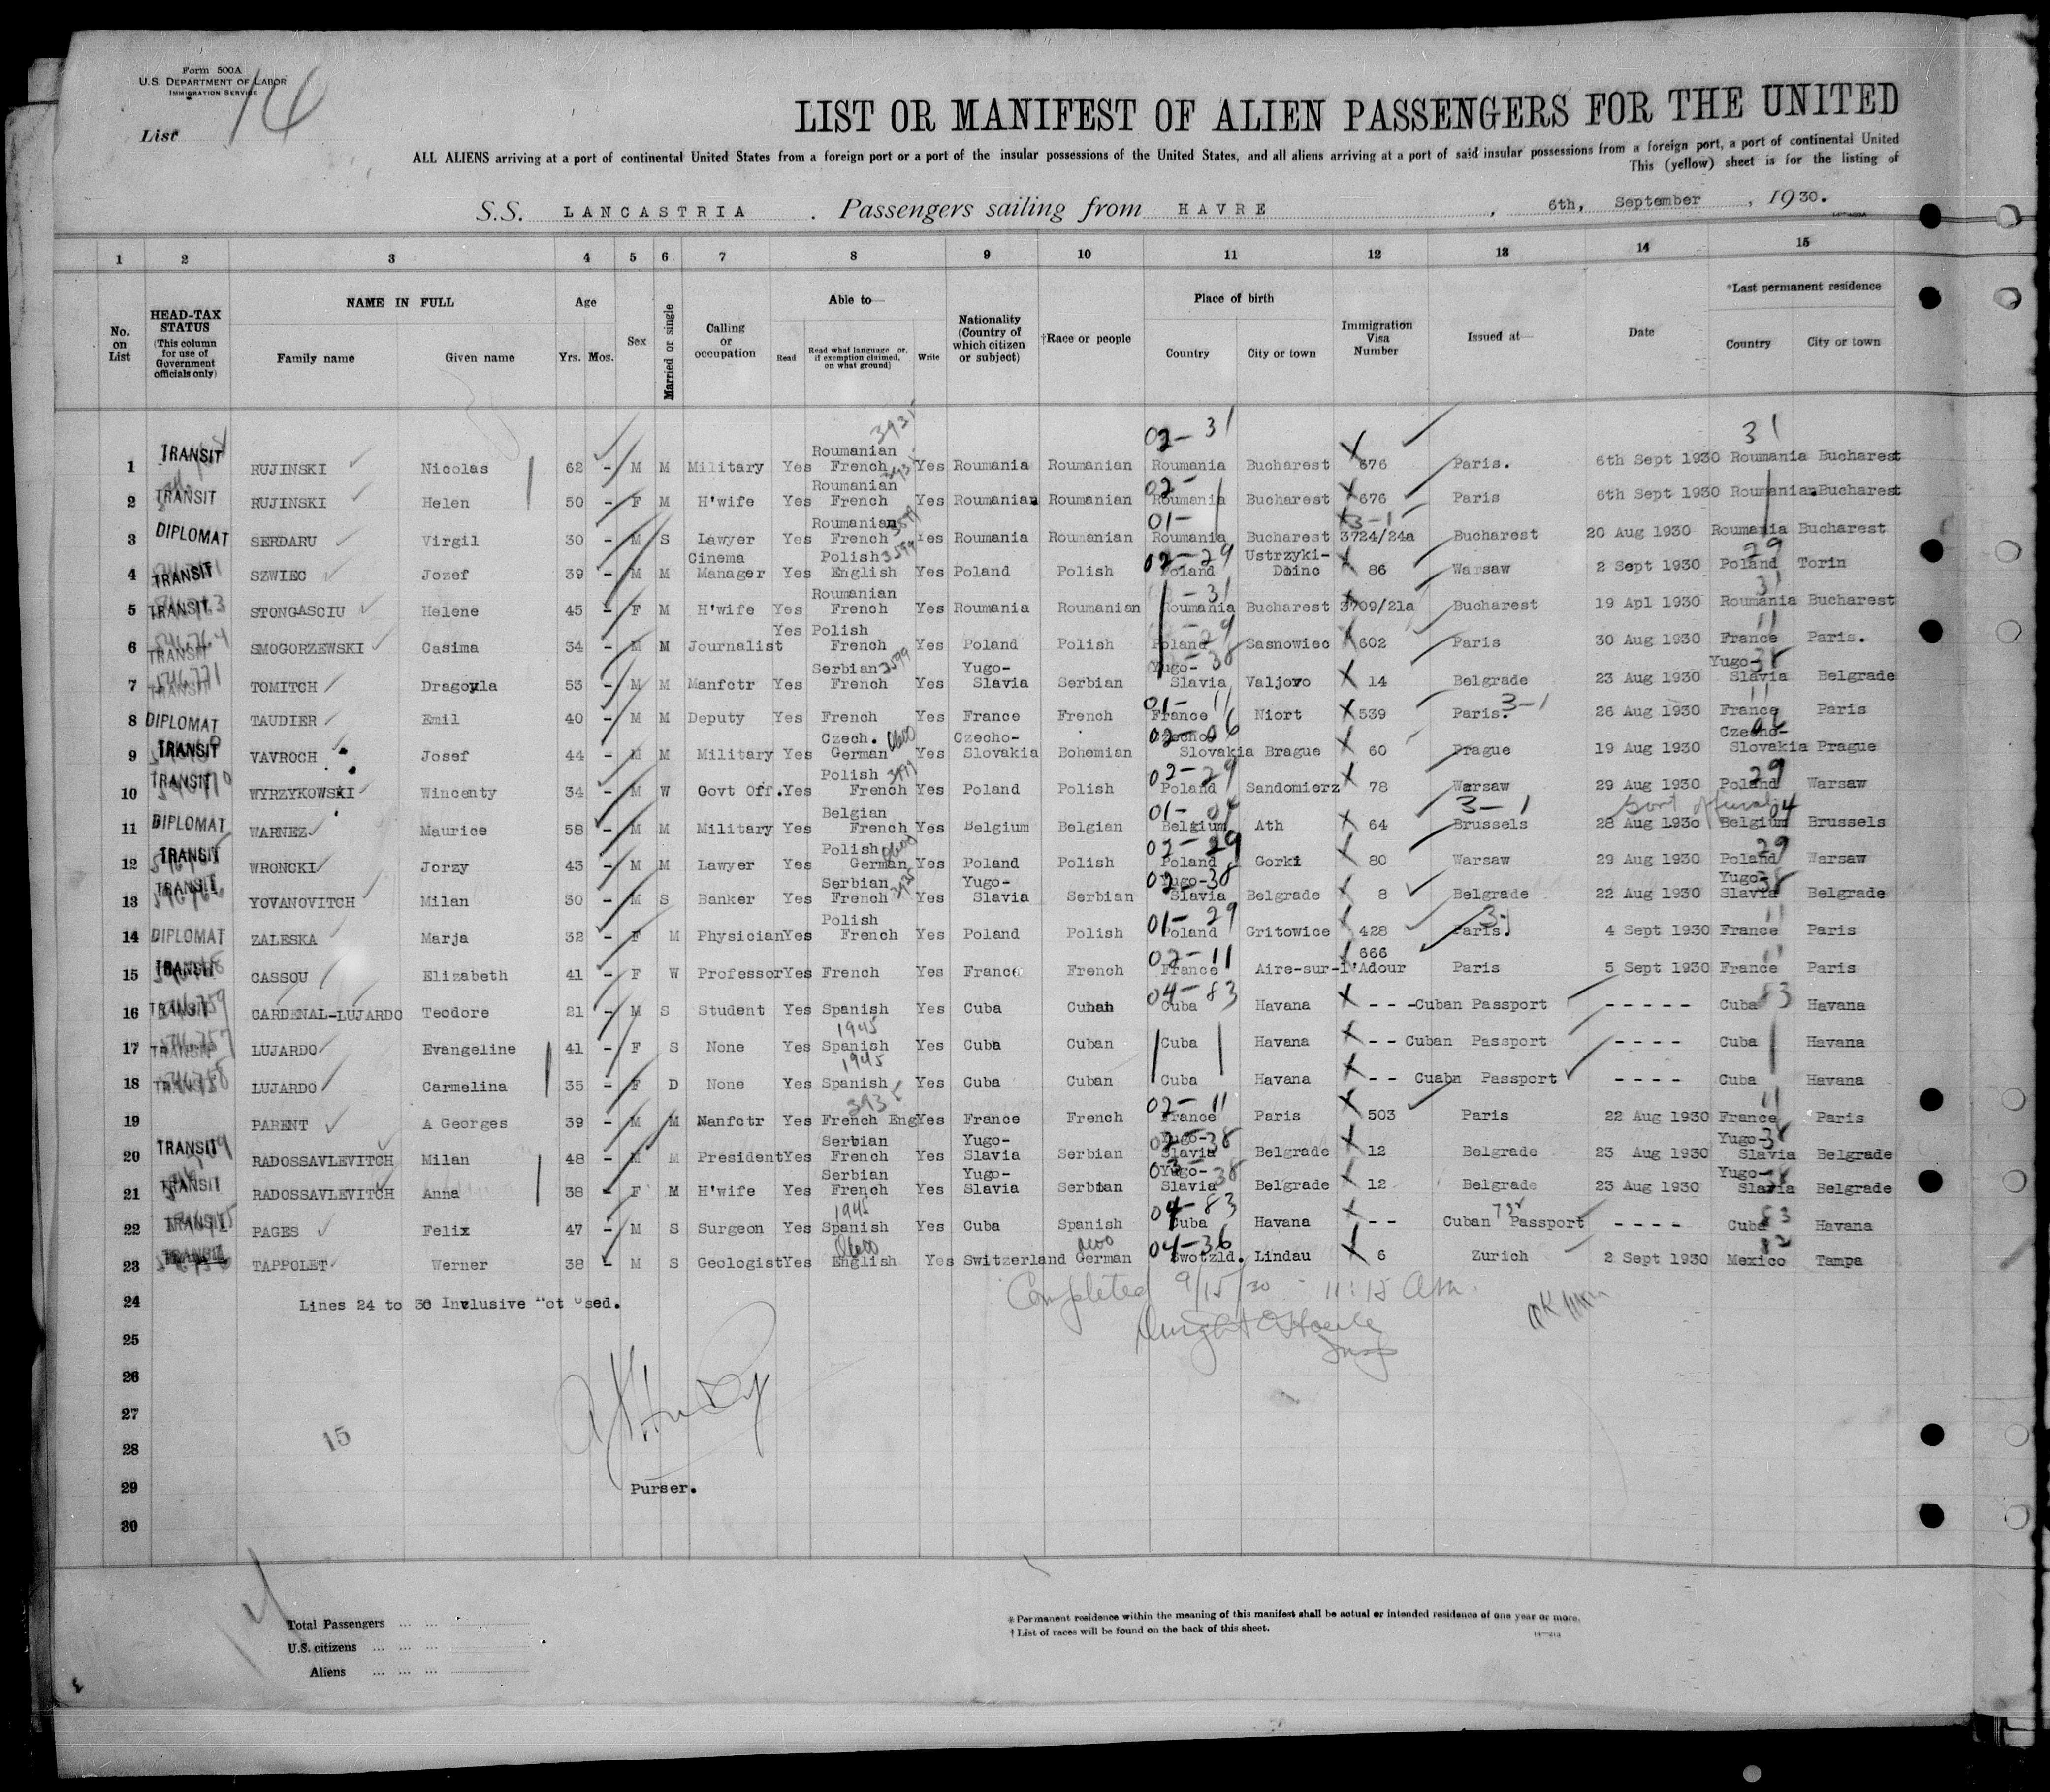 Form 500A
U.S. DEPARTMENT OF LABOR
IMMIGRATION SERVICE
List 14
LIST OR MANIFEST OF ALIEN PASSENGERS FOR THE UNITED
ALL ALIENS arriving at a port of continental United States from a foreign port or a port of the insular possessions of the United States, and all aliens arriving at a port of said insular possessions from a foreign port, a port of continental United
This (yellow) sheet is for the listing of
S.S. LANCASTRIA . Passengers sailing from HAVRE , 6th, September , 1930.
1 2 3 4 5 6 7 8 9 10 11 12 13 14 15
No. on List
HEAD-TAX STATUS (This column for use of Government officials only)
NAME IN FULL
Family name Given name
Age
Yrs. Mos.
Sex
Married or single
Calling or occupation
Able to—
Read
Read what language or, if exemption claimed, on what ground]
Write
Nationality (Country of which citizen or subject)
†Race or people
Place of birth
Country City or town
Immigration Visa Number
Issued at—
Date
*Last permanent residence
Country City or town
02- 31 31
1 TRANSIT RUJINSKI Nicolas 62 - M M Military Yes Roumanian French Yes Roumania Roumanian Roumania Bucharest 676 Paris. 6th Sept 1930 Roumania Bucharest
2 TRANSIT RUJINSKI Helen 50 - F M H'wife Yes Roumanian French Yes Roumanian Roumanian 02- Roumania Bucharest 676 Paris 6th Sept 1930 Roumania Bucharest
3 DIPLOMAT SERDARU Virgil 30 - M S Lawyer Yes Roumanian French Yes Roumania Roumanian 01- Roumania Bucharest 3-1 3724/24a Bucharest 20 Aug 1930 Roumania Bucharest
4 TRANSIT SZWIEC Jozef 39 - M M Cinema Manager Yes Polish 3599 English Yes Poland Polish 02-29 Poland Ustrzyki-Doinc 86 Warsaw 2 Sept 1930 29 Poland Torin
5 TRANSIT STONGASCIU Helene 45 - F M H'wife Yes Roumanian French Yes Roumania Roumanian -31 Roumania Bucharest 3709/21a Bucharest 19 Apl 1930 31 Roumania Bucharest
6 TRANSIT SMOGORZEWSKI Casima 34 - M M Journalist Yes Polish French Yes Poland Polish 29 Poland Sasnowiec 602 Paris 30 Aug 1930 11 France Paris.
7 TRANSIT TOMITCH Dragoyla 53 - M M Manfctr Yes Serbian 3599 French Yes Yugo-Slavia Serbian Yugo- 38 Slavia Valjovo 14 Belgrade 23 Aug 1930 Yugo- 38 Slavia Belgrade
8 DIPLOMAT TAUDIER Emil 40 - M M Deputy Yes French Yes France French 01- 11 France Niort 539 Paris. 3-1 26 Aug 1930 11 France Paris
9 TRANSIT VAVROCH Josef 44 - M M Military Yes Czech. German 0600 Yes Czecho-Slovakia Bohemian 02-06 Czecho-Slovakia Brague 60 Prague 19 Aug 1930 06 Czecho-Slovakia Prague
10 TRANSIT WYRZYKOWSKI Wincenty 34 - M W Govt Off. Yes Polish French Yes Poland Polish 02-29 Poland Sandomierz 78 Warsaw 29 Aug 1930 29 Poland Warsaw
11 DIPLOMAT WARNEZ Maurice 58 - M M Military Yes Belgian French Yes Belgium Belgian 01- 04 Belgium Ath 64 3-1 Brussels 28 Aug 1930 04 Belgium Brussels
12 TRANSIT WRONCKI Jorzy 43 - M M Lawyer Yes Polish German 0600 Yes Poland Polish 02-29 Poland Gorki 80 Warsaw 29 Aug 1930 29 Poland Warsaw
13 TRANSIT YOVANOVITCH Milan 30 - M S Banker Yes Serbian French Yes Yugo-Slavia Serbian 02-38 Yugo-Slavia Belgrade 8 Belgrade 22 Aug 1930 Yugo- 38 Slavia Belgrade
14 DIPLOMAT ZALESKA Marja 32 - F M Physician Yes Polish French Yes Poland Polish 01- 29 Poland Gritowice 428 3-1 Paris. 4 Sept 1930 11 France Paris
15 TRANSIT CASSOU Elizabeth 41 - F W Professor Yes French Yes France French 02-11 France Aire-sur-l'Adour 666 Paris 5 Sept 1930 11 France Paris
16 TRANSIT CARDENAL-LUJARDO Teodore 21 - M S Student Yes Spanish Yes Cuba Cuban 04-83 Cuba Havana - - - Cuban Passport - - - - - 83 Cuba Havana
17 TRANSIT LUJARDO Evangeline 41 - F S None Yes 1945 Spanish Yes Cuba Cuban Cuba Havana - - Cuban Passport - - - - Cuba Havana
18 TRANSIT LUJARDO Carmelina 35 - F D None Yes 1945 Spanish Yes Cuba Cuban Cuba Havana - - Cuabn Passport - - - - Cuba Havana
19 PARENT A Georges 39 - M M Manfctr Yes 3935 French Eng Yes France French 02-11 France Paris 503 Paris 22 Aug 1930 11 France Paris
20 TRANSIT RADOSSAVLEVITCH Milan 48 - M M President Yes Serbian French Yes Yugo-Slavia Serbian 02-38 Yugo-Slavia Belgrade 12 Belgrade 23 Aug 1930 Yugo- 38 Slavia Belgrade
21 TRANSIT RADOSSAVLEVITCH Anna 38 - F M H'wife Yes Serbian French Yes Yugo-Slavia Serbian 03-38 Yugo-Slavia Belgrade 12 Belgrade 23 Aug 1930 Yugo- 38 Slavia Belgrade
22 TRANSIT PAGES Felix 47 - M S Surgeon Yes 1945 Spanish Yes Cuba Spanish 04-83 Cuba Havana - - Cuban Passport - - - - 83 Cuba Havana
23 TRANSIT TAPPOLET Werner 38 - M S Geologist Yes 0600 English Yes Switzerland German 04-36 Swotzld. Lindau 6 Zurich 2 Sept 1930 82 Mexico Tampa
24 Lines 24 to 30 Inclusive Not Used. Completed 9/15/30 - 11:15 Am.
25
26
27
28 15
29 Purser.
30
14
Total Passengers ... ...
U.S. citizens ... ... ...
Aliens ... ... ...
* Permanent residence within the meaning of this manifest shall be actual or intended residence of one year or more.
† List of races will be found on the back of this sheet.